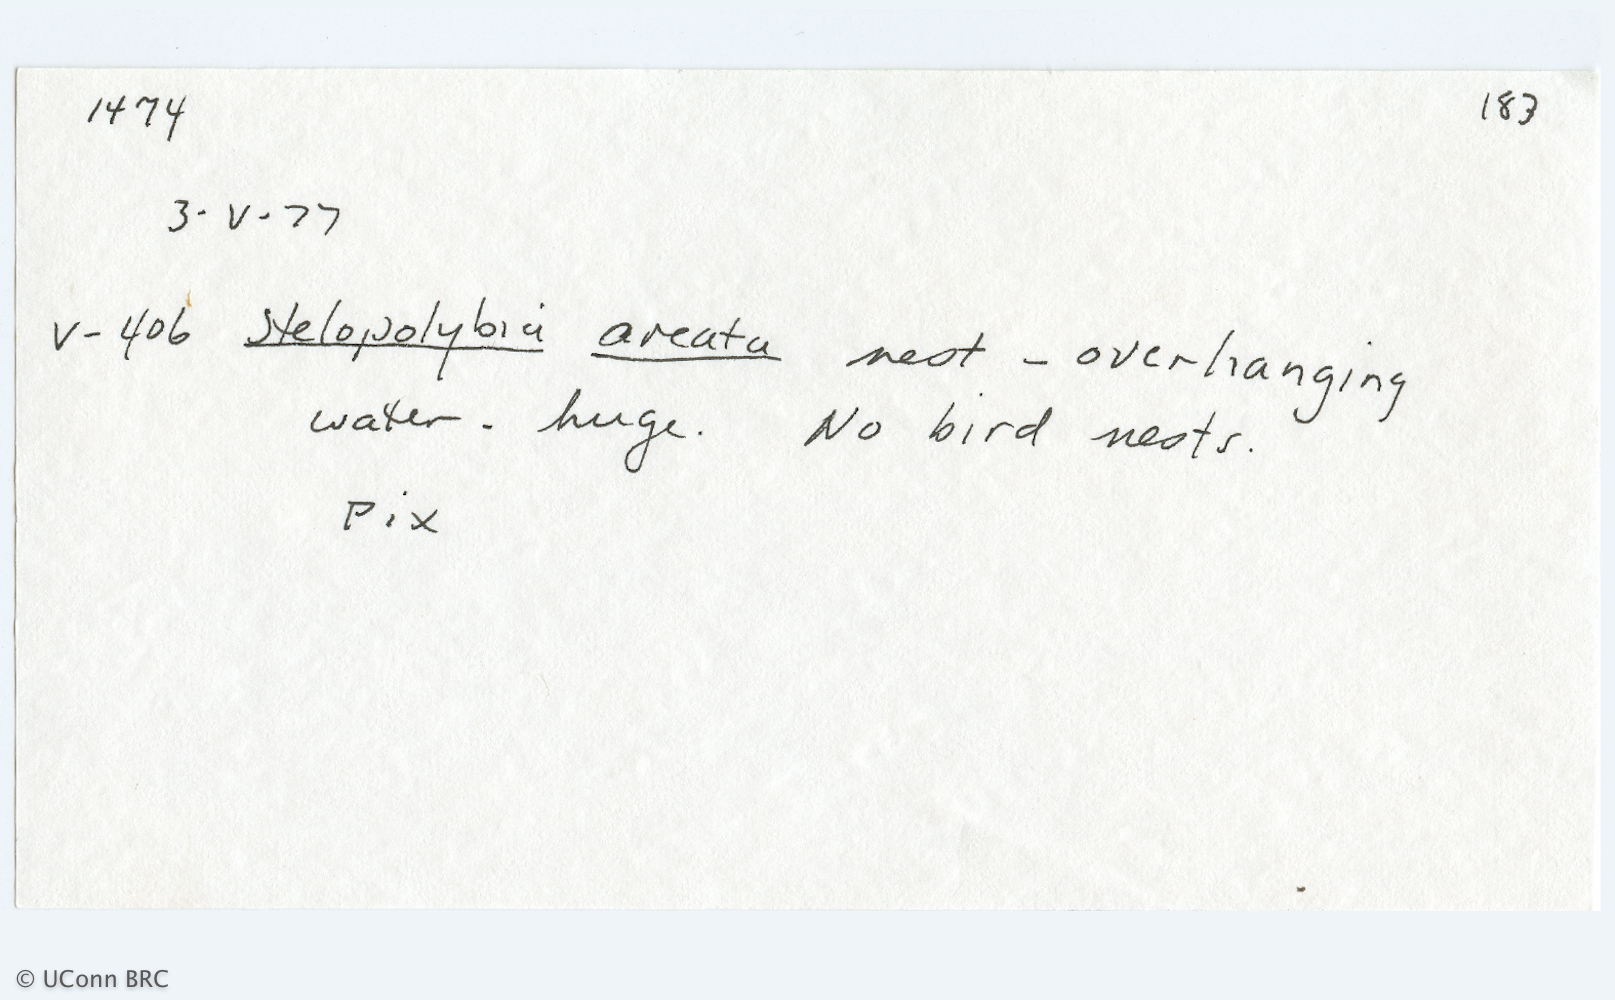 1474 183
3-V-77
V-406 Stelopolybia areata nest - overhanging
water - huge. No bird nests.
Pix
© UConn BRC